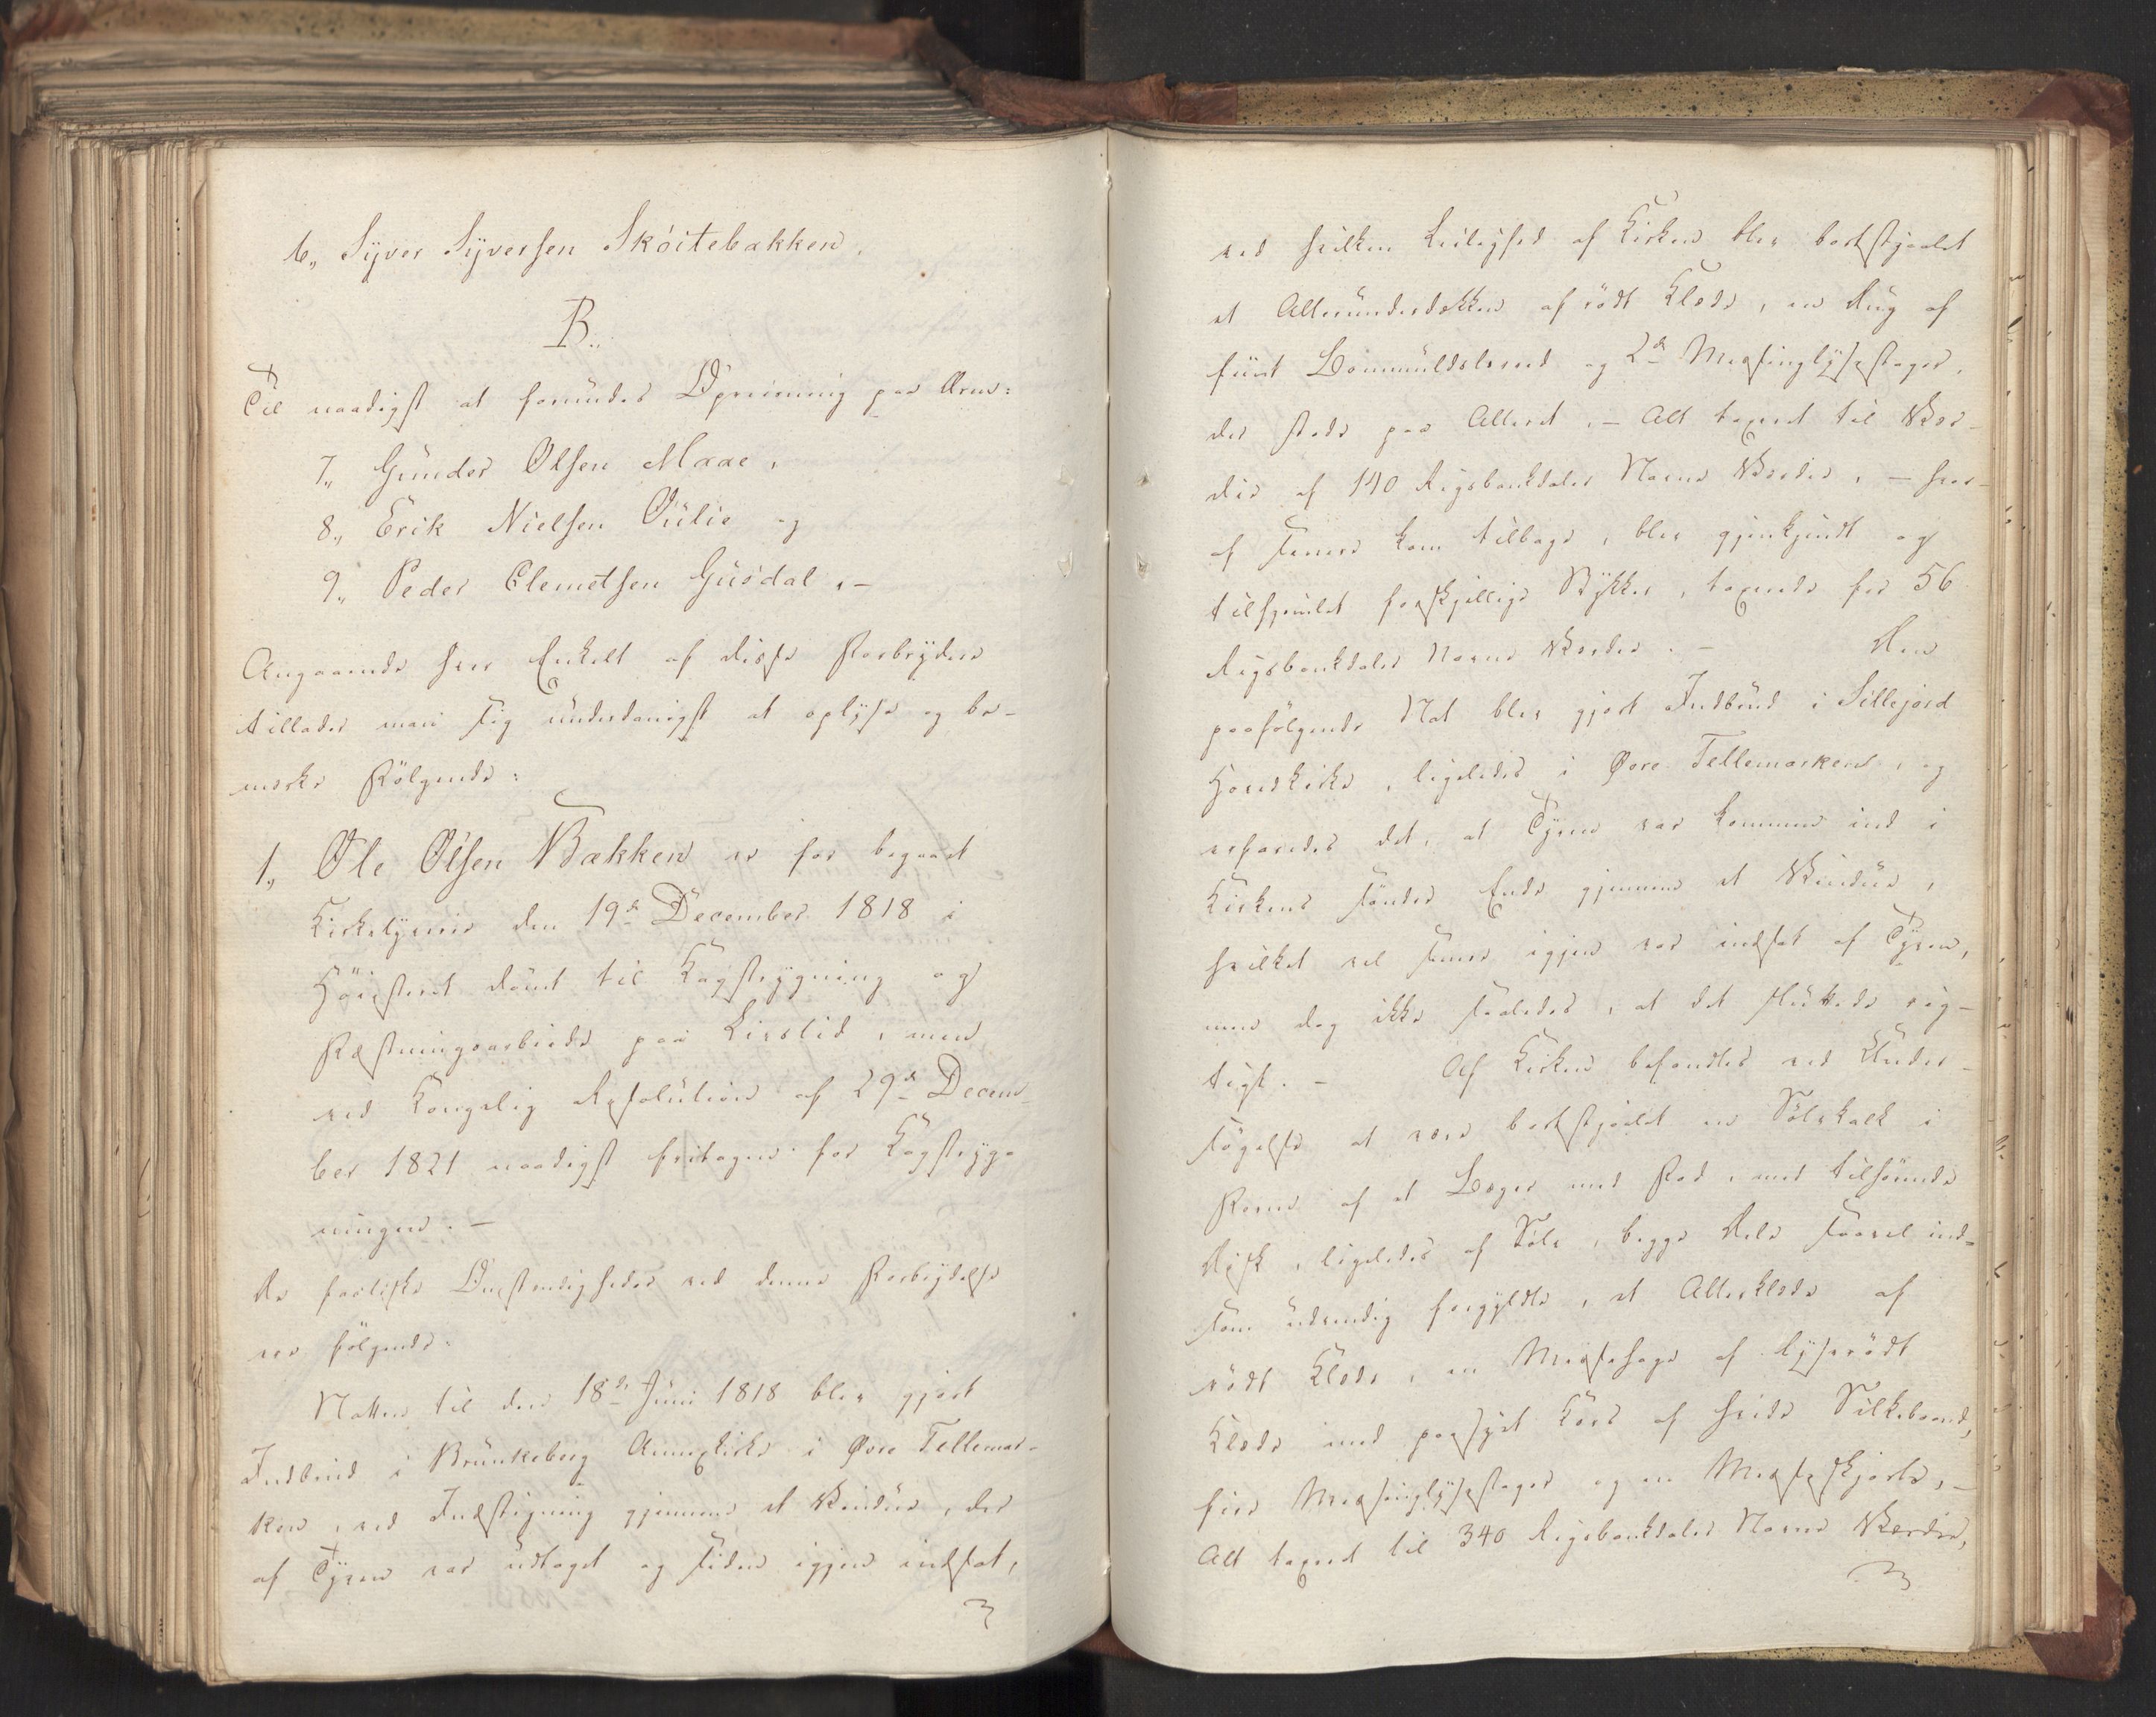 6,, Syver Syversen Skøitebakken.
B.
Til naadigst at forundes Opreisning paa Ære:
7,, Gunder Olsen Maae,
8,, Erik Nielsen Qvilie og
9,, Peder Clemetsen Gusdal,-
Angaaende hver Enkelt af disse Forbrydere
tillader man sig underdanigst at oplyse og be-
mærke Følgende:
1,, Ole Olsen Bakken er for begaaet
Kirketyverie den 19de December 1818 i
Høiesteret dømt til Kagstrygning og
Fæstningsarbeide paa Livstid, men
ved Kongelig Resolution af 29de Decem-
ber 1821 naadigst fritagen for Kagstryg-
ningen.-
De factiske Omstændigheder ved denne Forbrydelse
ere følgende:
Natten til den 18de Juni 1818 blev gjort
Indbrud i Brunkeberg Annexkirke i Øvre Tellemar-
ken, ved Indstigning gjennem et Vindue, der
af Tyven var udtaget og siden igjen indsat,
ved hvilken Leilighed af Kirken blev bortstjaalet
et Alterunderdækken af rødt Klæde, en Dug af
fiint Bommuldslærred og 2de Messinglysestager,
der stode paa Alteret,- Alt taxeret til Vær-
die af 140 Rigsbankdaler Navne Værdie,- hvor-
af senere kom tilbage, blev gjenkjendt og
tilhjemlet forskjellige Stykker, taxerede for 56
Rigsbankdaler Navne Værdie.- Den
paafølgende Nat blev gjort Indbrud i Sillejord
Hovedkirke, ligeledes i Øvre Tellemarken, og
erfaredes det, at Tyven var kommen ind i
Kirkens søndre Ende gjennem et Vindue,
hvilket vel senere igjen var indsat af Tyven,
men dog ikke saaledes, at det sluttede rig-
tigt.- Af Kirken befandtes ved Under-
søgelse at være bortstjaalet en Sølvkalk i
Form af et Bæger med Fod, med tilhørende
Disk, ligeledes af Sølv, begge Dele saavel ind-
som udvendig forgyldte, et Alterklæde af
rødt Klæde, en Messehagel af lyserødt
Klæde med paasyet Kors af hvide Silkebaand,
fire Messinglysestager og en Messeskjorte,-
Alt taxeret til 340 Rigsbankdaler Navne Værdie,